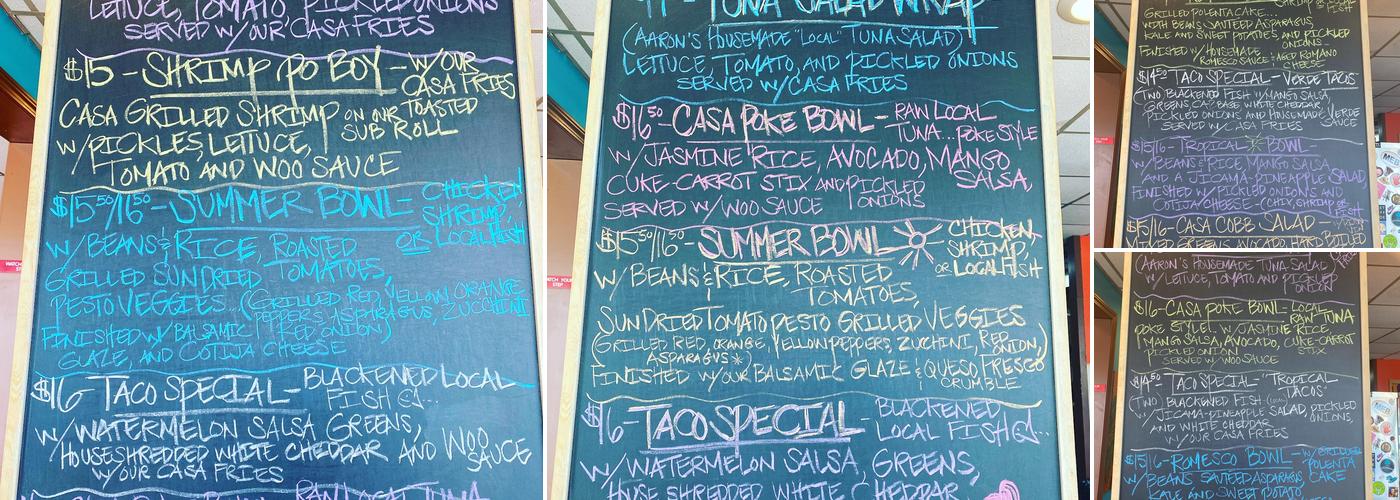 LETTUCE, TOMATO, PICKLED ONIONS
SERVED W/ OUR CASA FRIES
$15 - SHRIMP PO BOY - W/ OUR
CASA FRIES
CASA GRILLED SHRIMP ON OUR TOASTED
SUB ROLL
W/ PICKLES, LETTUCE,
TOMATO AND WOO SAUCE
$15⁵⁰/16⁵⁰ - SUMMER BOWL - CHICKEN,
SHRIMP,
OR LOCAL FISH
W/ BEANS & RICE, ROASTED
GRILLED SUNDRIED TOMATOES,
PESTO VEGGIES (GRILLED RED, YELLOW, ORANGE
PEPPERS, ASPARAGUS, ZUCCHINI
RED ONION)
FINISHED W/ BALSAMIC
GLAZE, AND COTIJA CHEESE
$16 - TACO SPECIAL - BLACKENED LOCAL
FISH
W/ WATERMELON SALSA, GREENS,
HOUSE SHREDDED WHITE CHEDDAR AND WOO
SAUCE
W/ OUR CASA FRIES
RAW LOCAL TUNA
TUNA SALAD WRAP
(AARON'S HOUSEMADE "LOCAL" TUNA SALAD)
LETTUCE, TOMATO, AND PICKLED ONIONS
SERVED W/ CASA FRIES
$16⁵⁰ - CASA POKE BOWL - RAW LOCAL
TUNA... POKE STYLE
W/ JASMINE RICE, AVOCADO, MANGO
SALSA,
CUKE-CARROT STIX AND PICKLED
ONIONS
SERVED W/ WOO SAUCE
$15⁵⁰/16⁵⁰ - SUMMER BOWL CHICKEN,
SHRIMP,
OR LOCAL FISH
W/ BEANS & RICE, ROASTED
TOMATOES,
SUNDRIED TOMATO PESTO GRILLED VEGGIES
(GRILLED RED, ORANGE, YELLOW PEPPERS, ZUCHINI, RED
ONION,
ASPARAGUS*)
FINISHED W/ OUR BALSAMIC GLAZE & QUESO FRESCO
CRUMBLE
$16 - TACO SPECIAL BLACKENED
LOCAL FISH
W/ WATERMELON SALSA, GREENS,
HOUSE SHREDDED WHITE CHEDDAR
GRILLED POLENTA CAKE...
WITH BEANS SAUTEED ASPARAGUS,
KALE AND SWEET POTATOES, AND PICKLED
ONIONS -
FINISHED W/ HOUSEMADE
ROMESCO SAUCE & AGED ROMANO
CHEESE
$14⁵⁰ TACO SPECIAL - VERDE TACOS
(TWO BLACKENED FISH W/ MANGO SALSA,
GREENS, CABBAGE, WHITE CHEDDAR,
PICKLED ONIONS AND HOUSEMADE VERDE
SAUCE
SERVED W/ CASA FRIES
$15/16 - TROPICAL BOWL -
W/ BEANS & RICE, MANGO SALSA
AND A JICAMA-PINEAPPLE SALAD,
FINISHED W/ PICKLED ONIONS AND
COTIJA CHEESE - (CHIX, SHRIMP, OR
FISH
$15/16 - CASA COBB SALAD -
MIXED GREENS, AVOCADO, HARD BOILED
(AARON'S HOUSEMADE TUNA SALAD
W/ LETTUCE, TOMATO AND PICKLED
ONION
$16 - CASA POKE BOWL - LOCAL
RAW TUNA
POKE STYLE! W/ JASMINE RICE,
MANGO SALSA, AVOCADO, CUKE-CARROT
STIX
PICKLED ONION
SERVED W/ WOO SAUCE
$14⁵⁰ - TACO SPECIAL - "TROPICAL
TACOS"
(TWO BLACKENED FISH
W/ JICAMA-PINEAPPLE SALAD, PICKLED
ONIONS,
AND WHITE CHEDDAR
W/ OUR CASA FRIES
$15/16 - ROMESCO BOWL - W/ GRILLED
POLENTA
W/ BEANS SAUTEED ASPARAGUS, CAKE
KALE AND SWEET POTATO
WATCH YOUR
STEP